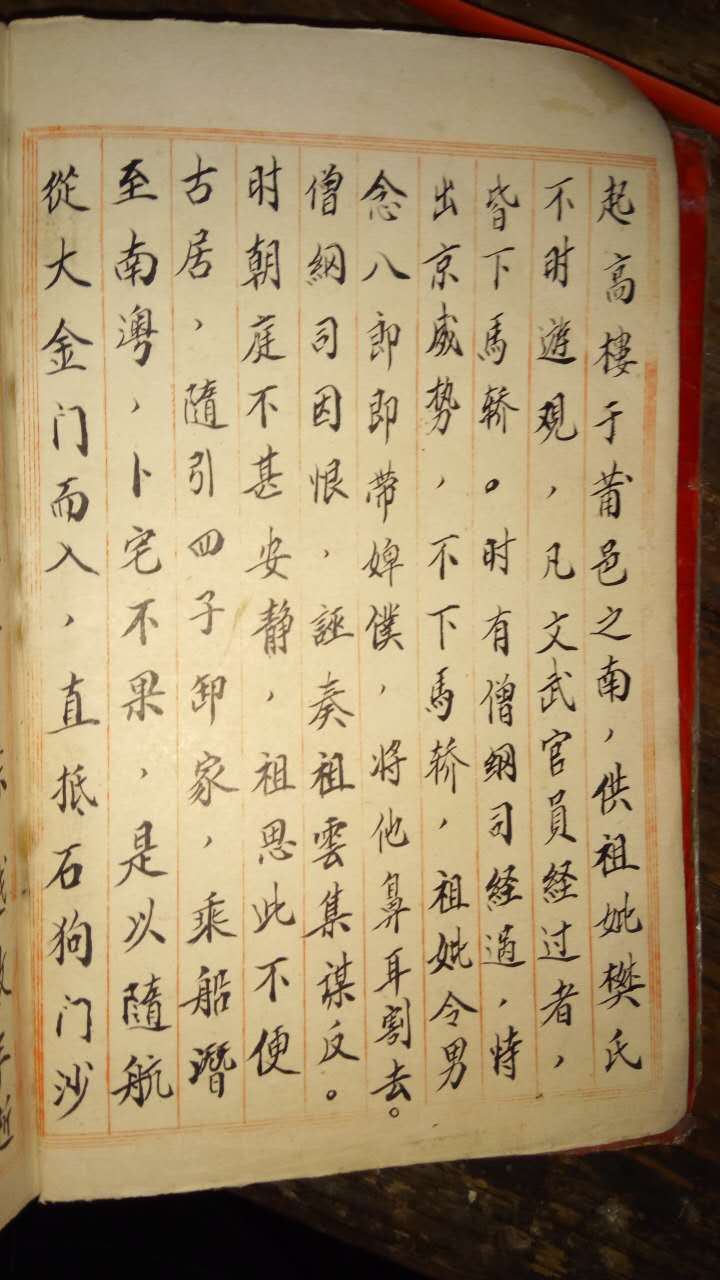 起高樓于莆邑之南，供祖妣樊氏
不时遊观，凡文武官員经过者，
皆下馬轿。时有僧纲司经過，恃
出京威势，不下馬轿，祖妣令男
念八郎即带婢僕，将他鼻耳割去。
僧綱司因恨，誣奏祖雲集謀反。
时朝庭不甚安静，祖思此不便
古居，隨引四子卸家，乘船潛
至南粤，卜宅不果，是以隨航
從大金门而入，直抵石狗门沙